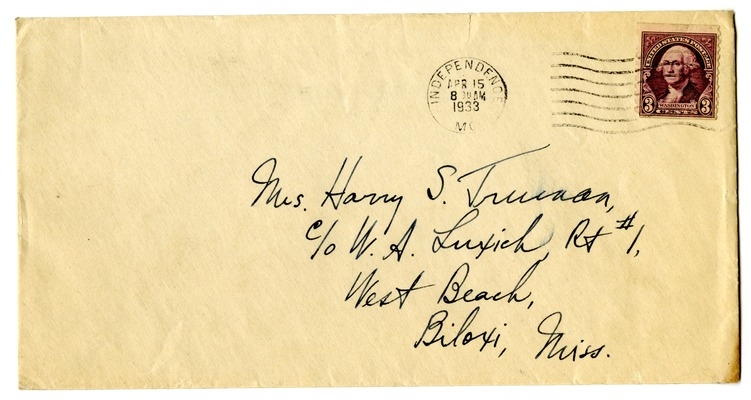 INDEPENDENCE
APR 15
8 30 AM
1933
MO
UNITED STATES POSTAGE
3 WASHINGTON 3
CENTS
Mrs. Harry S. Truman,
c/o W. A. Luxich, Rt #1,
West Beach,
Biloxi, Miss.